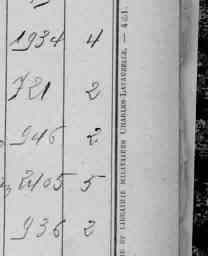 1934 4
721 2
946 2
2405 5
936 2
IE ET LIBRAIRIE MILITAIRES CHARLES-LAVAUZELLE. — 421.